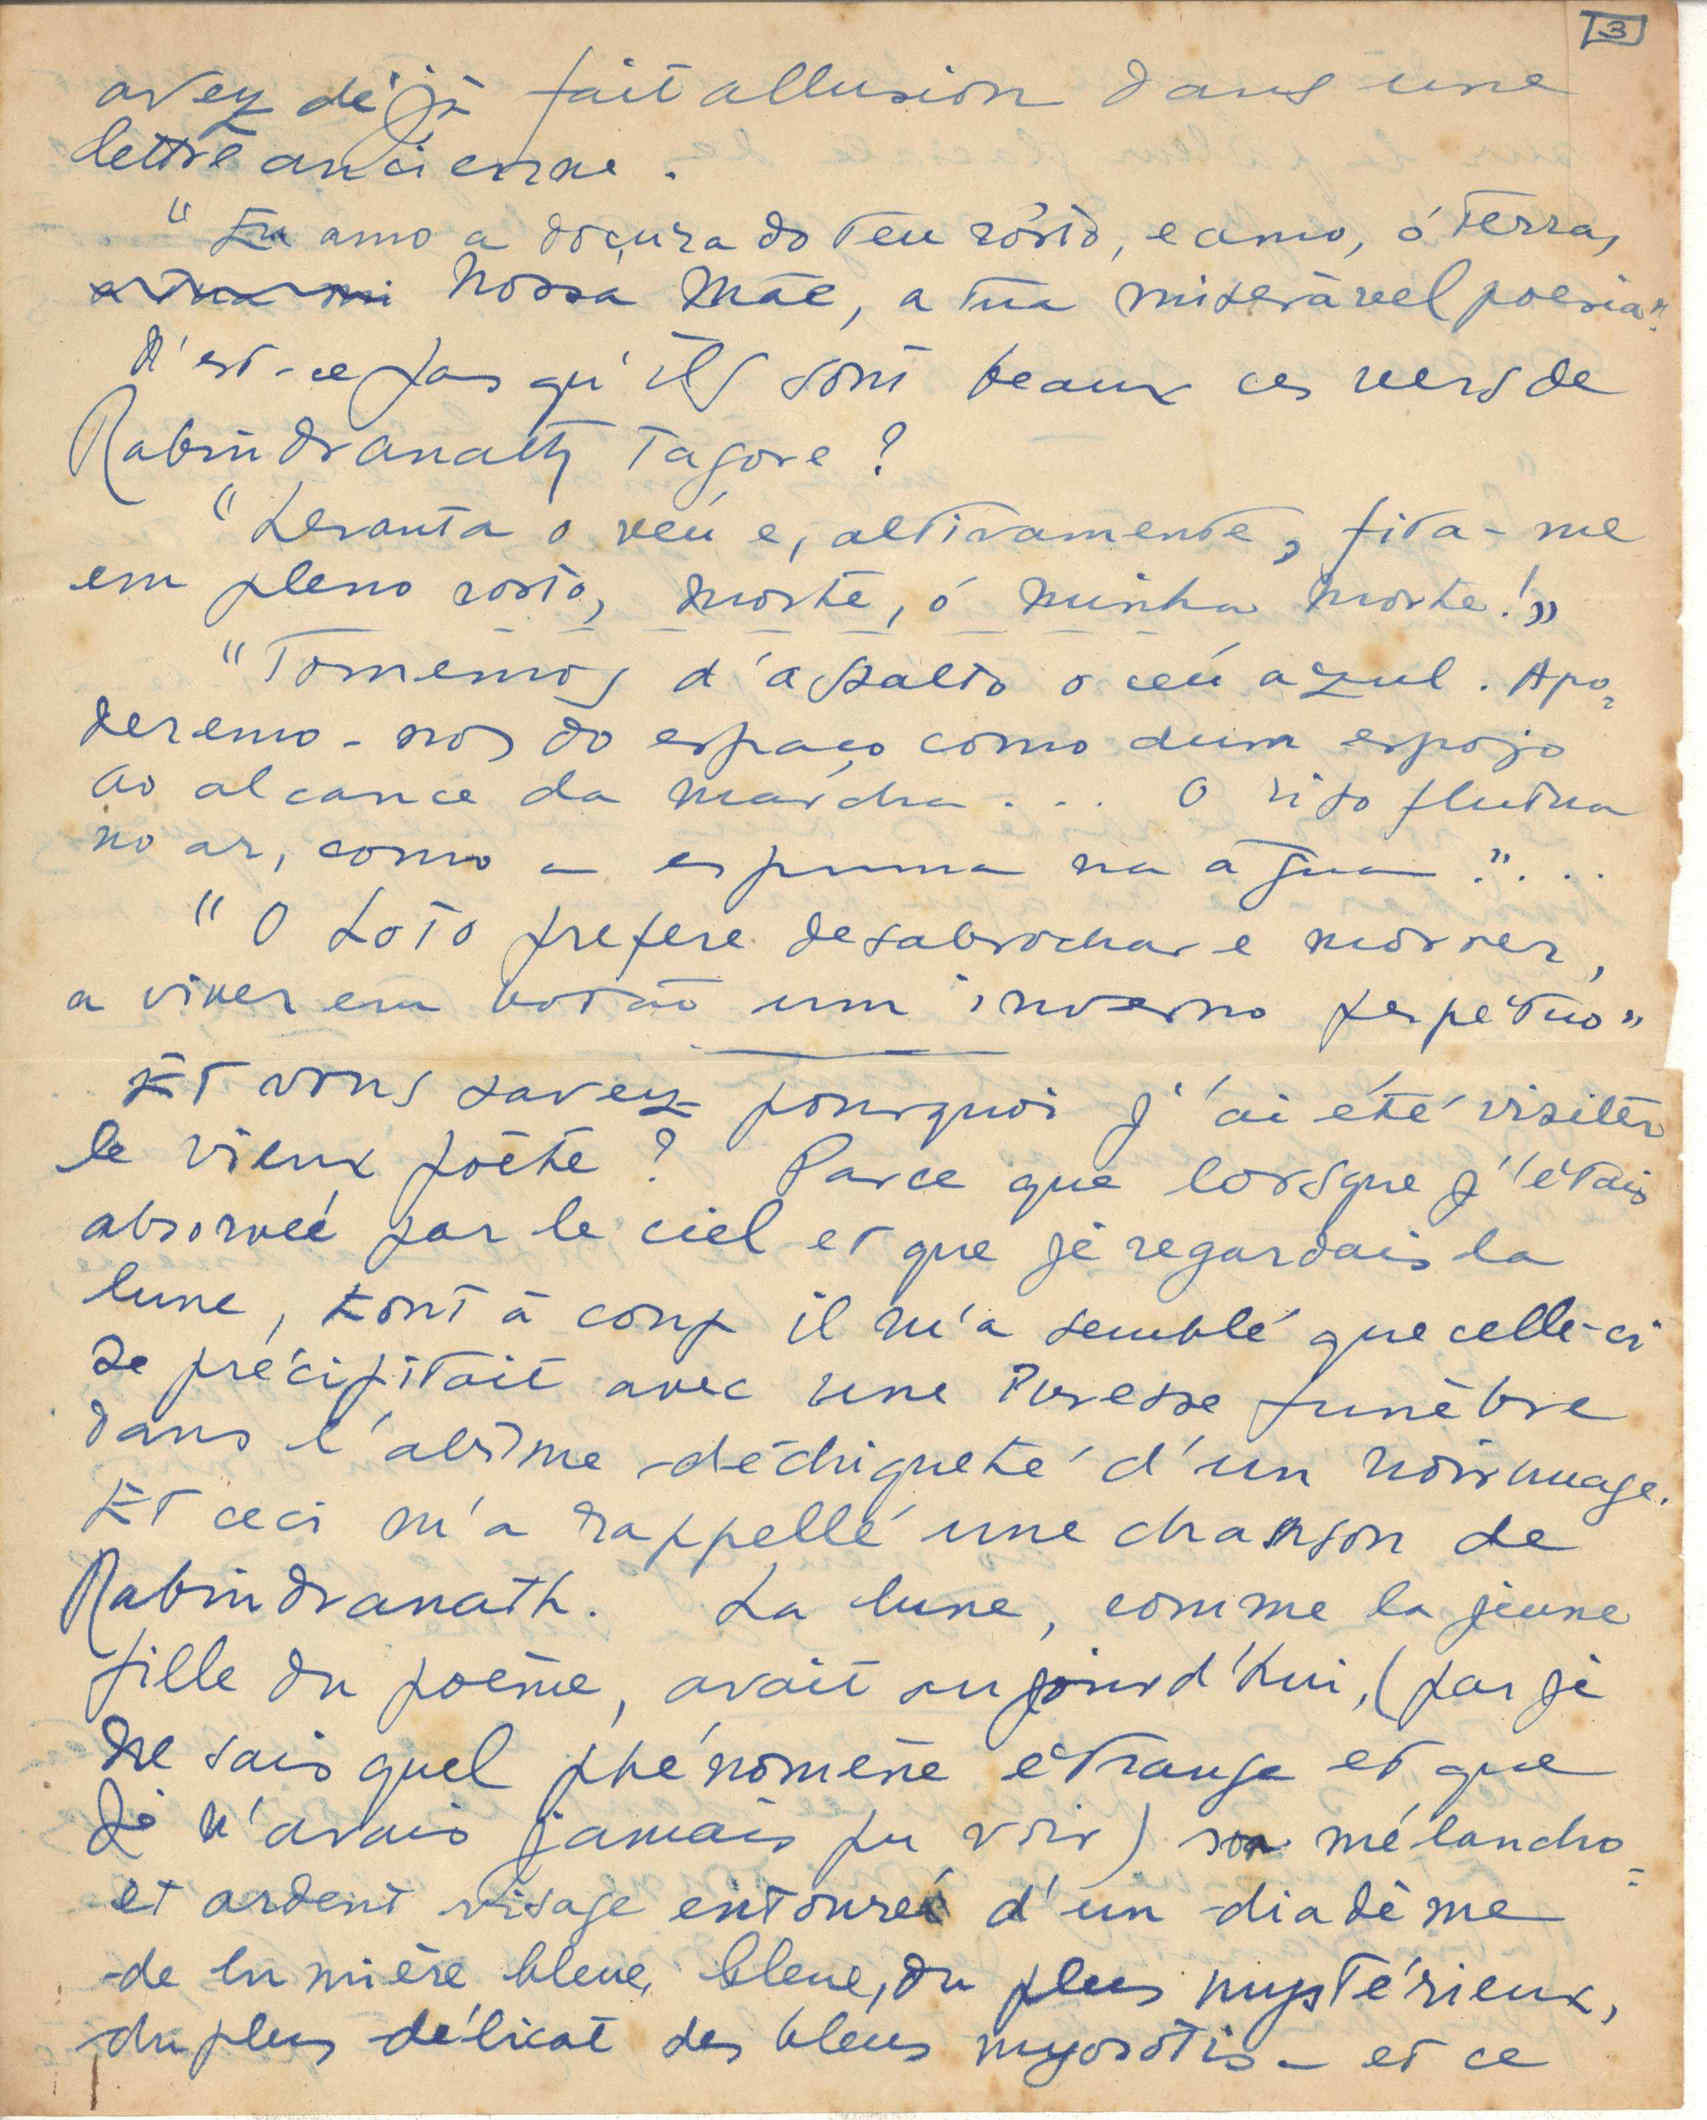 3
avez déjà fait allusion dans une
lettre ancienne.
"Eu amo a doçura do teu rôsto, e amo, ó Terra,
Nossa Mãe, a tua miserável poesia".
N'est-ce pas qu'ils sont beaux ces vers de
Rabindranath Tagore?
"Levanta o véu e, altivamente, fita-me
em pleno rosto, morte, ó minha morte!"
"Tomemos d'assalto o céu azul. Apo-
deremo-nos do espaço como dum espojo
ao alcance da marcha... O riso flutua
no ar, como a espuma na água"...
"O Loto prefere desabrochar e morrer,
a viver em botão um inverno perpétuo"
Et vous savez pourquoi j'ai été visiter
le vieux poète? Parce que lorsque j'étais
absorvée par le ciel et que je regardais la
lune, tout à coup il m'a semblé que celle-ci
se précipitait avec une ivresse funèbre
dans l'abîme déchiqueté d'un noir nuage.
Et ceci m'a rappellé une chanson de
Rabindranath. La lune, comme la jeune
fille du poème, avait aujourd'hui, (par je
ne sais quel phénomène étrange et que
je n'avais jamais pu voir) son mélancho-
et ardent visage entouré d'un diadème
de lumière bleue, bleue, du plus mystérieux,
du plus délicat des bleus myosotis - et ce